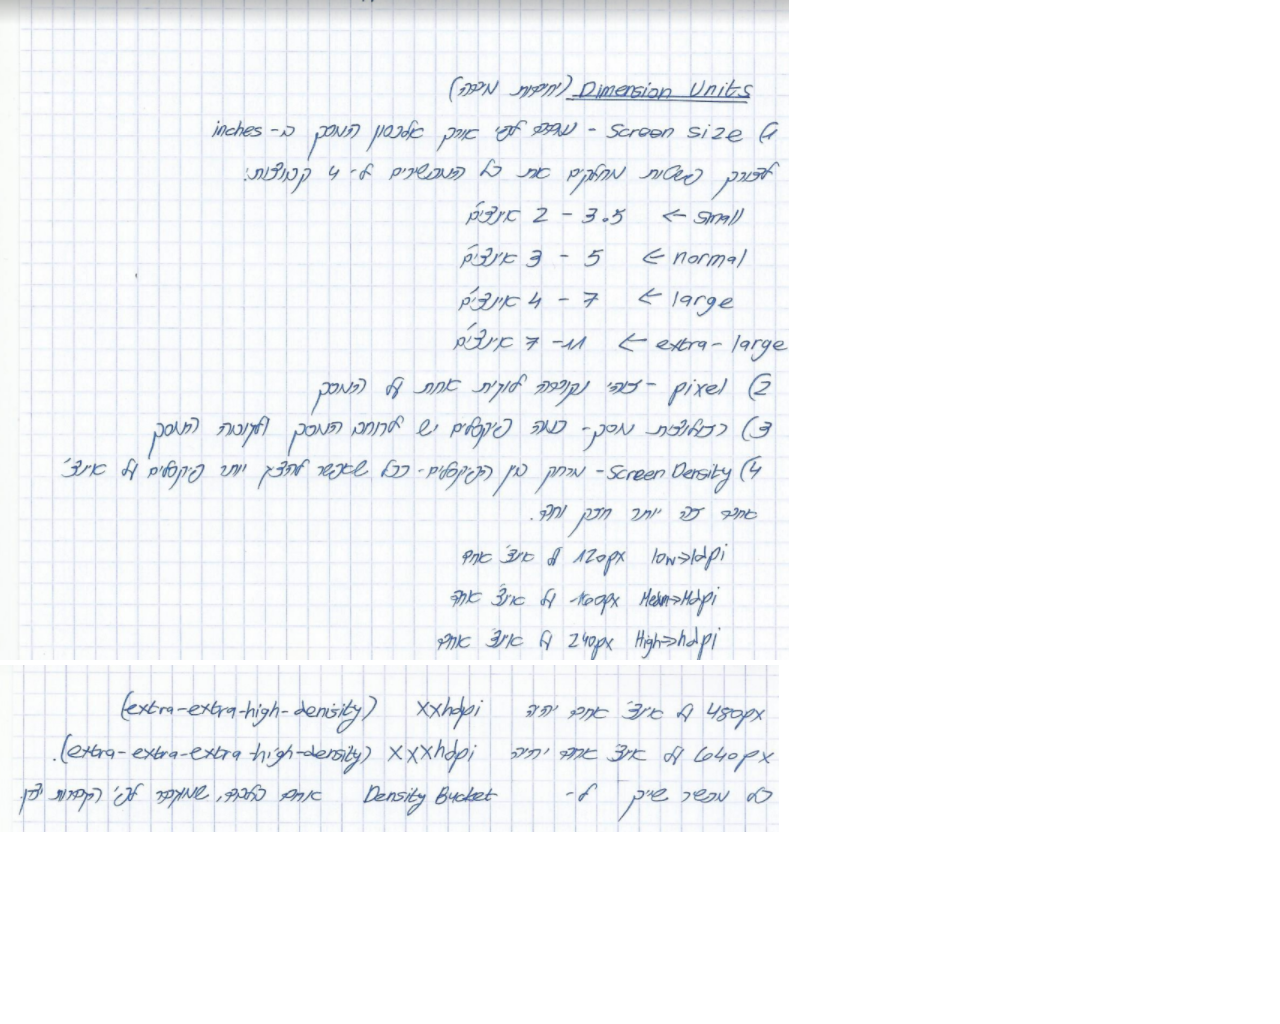 Dimension Units (יחידות מידה)
1) Screen size - נמדד לפי אורך אלכסון המסך ב- inches
לצורך פשטות מחלקים את כל המכשירים ל- 4 קבוצות:
small ← 2 - 3.5 אינצ'ים
normal ← 3 - 5 אינצ'ים
large ← 4 - 7 אינצ'ים
extra-large ← 7 - 11 אינצ'ים
2) pixel - זוהי נקודה לוגית אחת על המסך
3) רזולוצית מסך - כמה פיקסלים יש לרוחב המסך ולגובה המסך
4) Screen Density - מרחק בין הפיקסלים - ככל שאפשר להציג יותר פיקסלים על אינצ'
אחד זה יותר חזק וחד.
low→ldpi 120px על אינצ' אחד
Medium→Mdpi 160px על אינצ' אחד
High→hdpi 240px על אינצ' אחד
480px על אינצ' אחד יהיה xxhdpi (extra-extra-high-denisity)
640px על אינצ' אחד יהיה xxxhdpi (extra-extra-extra-high-density).
כל מכשיר שייך ל- Density Bucket אחד בלבד, שמוגדר לפי הגדרות יצרן.